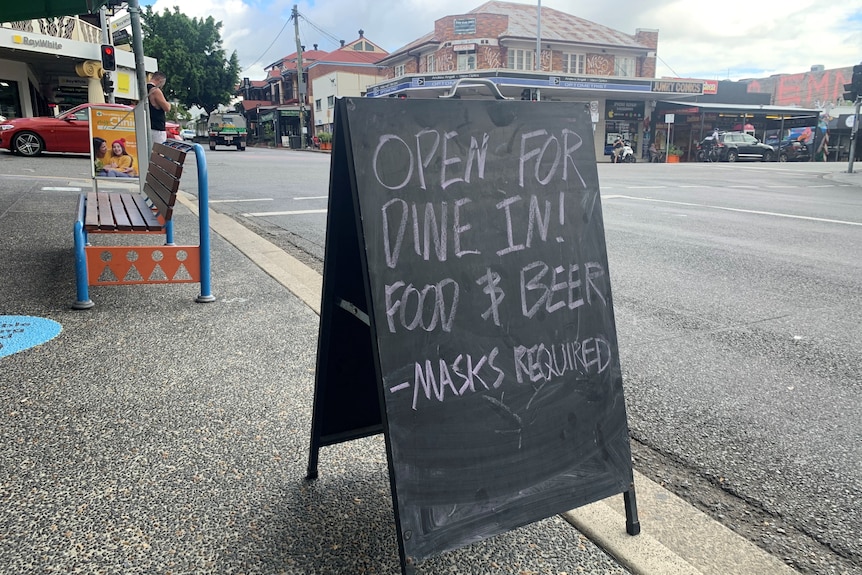 RayWhite
JUNKY COMICS
OPEN FOR
DINE IN!
FOOD & BEER
-MASKS REQUIRED